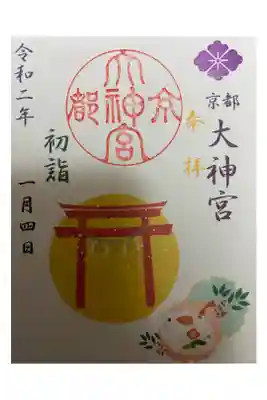 京都
大神宮
奉拝
京都大神宮
初詣
令和二年
一月四日